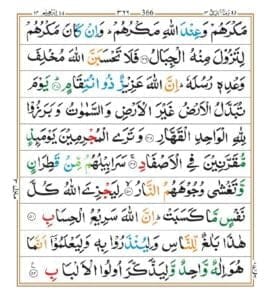 366
مَكْرَهُمْ وَعِنْدَ اللّٰهِ مَكْرُهُمْ ؕ وَاِنْ كَانَ مَكْرُهُمْ
لِتَزُوْلَ مِنْهُ الْجِبَالُ ۞ فَلَا تَحْسَبَنَّ اللّٰهَ مُخْلِفَ
وَعْدِهٖ رُسُلَهٗ ؕ اِنَّ اللّٰهَ عَزِيْزٌ ذُو انْتِقَامٍ ؕ يَوْمَ
تُبَدَّلُ الْاَرْضُ غَيْرَ الْاَرْضِ وَالسَّمٰوٰتُ وَبَرَزُوْا
لِلّٰهِ الْوَاحِدِ الْقَهَّارِ ۞ وَتَرَى الْمُجْرِمِيْنَ يَوْمَئِذٍ
مُّقَرَّنِيْنَ فِى الْاَصْفَادِ ۞ سَرَابِيْلُهُمْ مِّنْ قَطِرَانٍ
وَّتَغْشٰى وُجُوْهَهُمُ النَّارُ ۞ لِيَجْزِىَ اللّٰهُ كُلَّ
نَفْسٍ مَّا كَسَبَتْ ؕ اِنَّ اللّٰهَ سَرِيْعُ الْحِسَابِ ۞
هٰذَا بَلٰغٌ لِّلنَّاسِ وَلِيُنْذَرُوْا بِهٖ وَلِيَعْلَمُوْۤا اَنَّمَا
هُوَ اِلٰهٌ وَّاحِدٌ وَّلِيَذَّكَّرَ اُولُوا الْاَلْبَابِ ۞